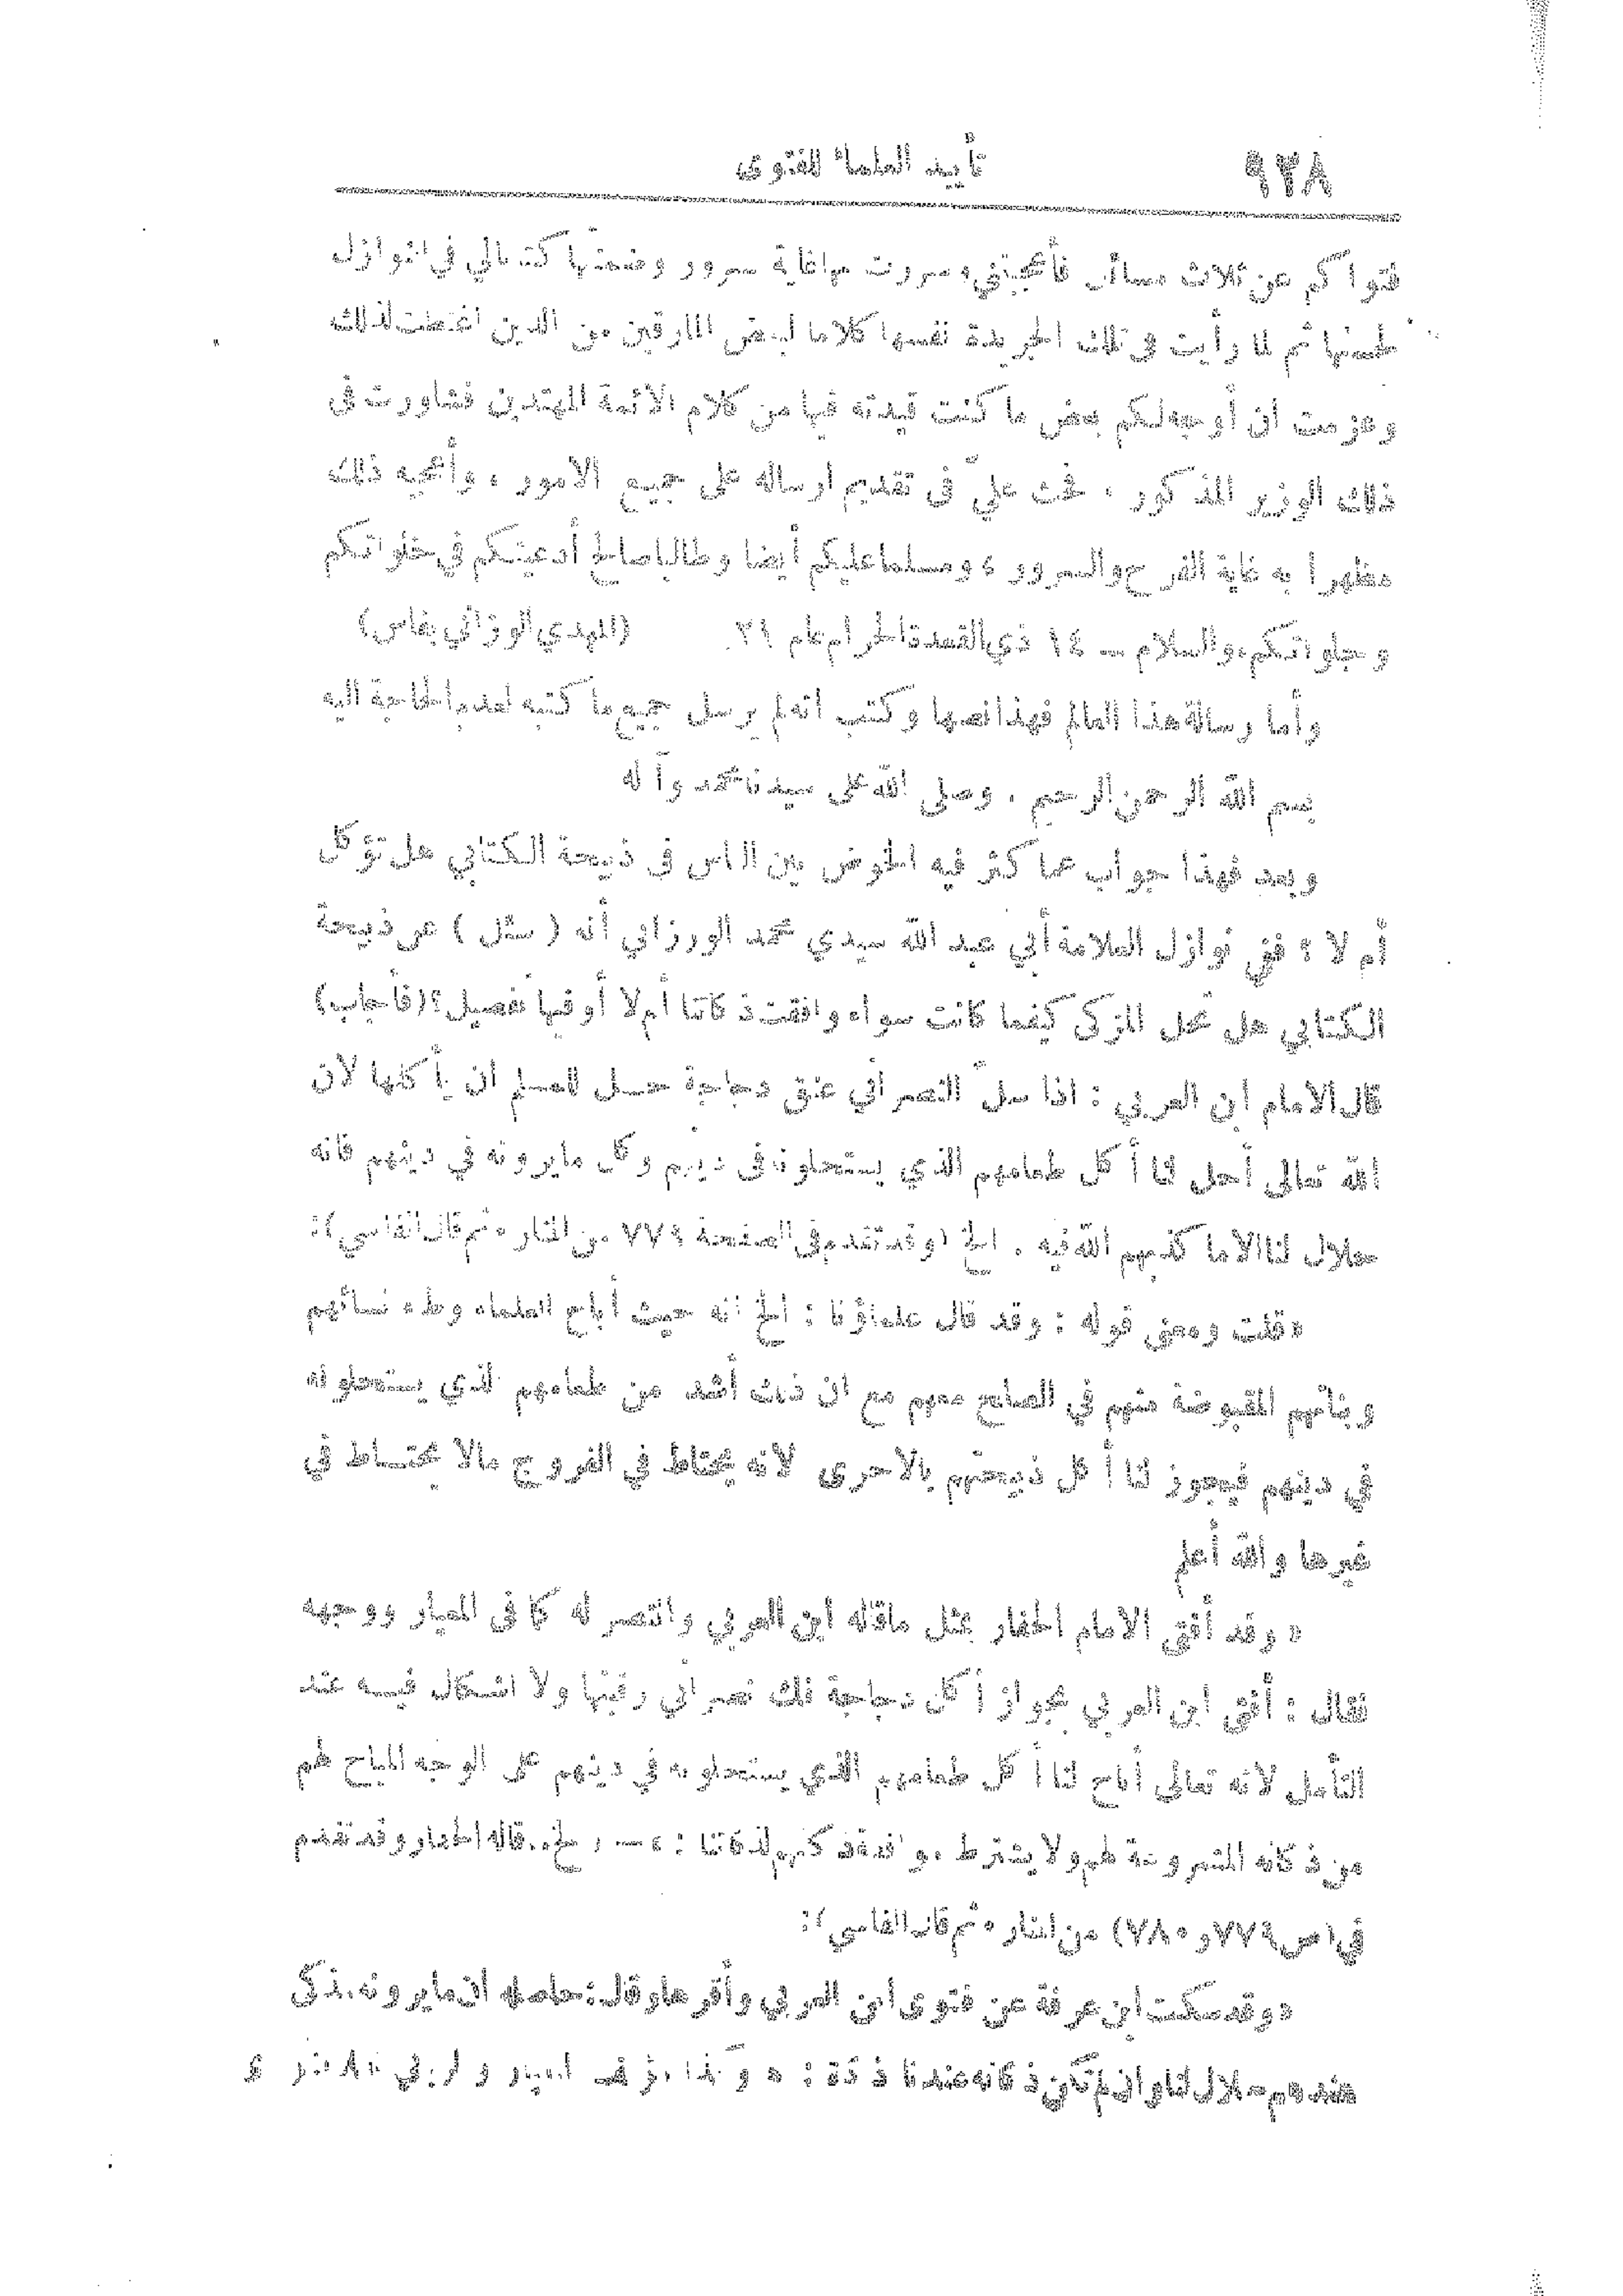 ٩٢٨ تأييد العلماء للفتوى
فتواكم عن ثلاث مسائل فأعجبتني وسررت بها غاية سرور وضمنتها كتابي في النوازل
ثم لما رأيت في تلك الجريدة نفسها كلاما لبعض المارقين من الدين اغتظت لذلك
وعزمت ان أوجه لكم بعض ما كنت قيدته فيها من كلام الأئمة المهتدين فشاورت في
ذلك الوزير المذكور ، فحث عليّ في تقديم ارساله على جميع الامور ، وأعجبه ذلك
مظهرا به غاية الفرح والسرور ، ومسلما عليكم أيضا وطالبا صالح أدعيتكم في خلواتكم
وجلواتكم، والسلام — ١٤ ذي القعدة الحرام عام ٢١ (المهدي الوزاني بفاس)
وأما رسالة هذا العالم فهذا نصها وكتب انه لم يرسل جميع ما كتبه لعدم الحاجة اليه
بسم الله الرحمن الرحيم . وصلى الله على سيدنا محمد وآله
وبعد فهذا جواب عما كثر فيه الخوض بين الناس في ذبيحة الكتابي هل تؤكل
أم لا ؟ ففي نوازل العلامة أبي عبد الله سيدي محمد الورزاني أنه ( سئل ) عن ذبيحة
الكتابي هل تحل المزكى كيفما كانت سواء وافقت ذكاتنا أم لا أو فيها تفصيل؟ (فأجاب)
قال الامام ابن العربي : اذا سلّ النصراني عنق دجاجة حسل للمسلم ان يأكلها لان
الله تعالى أحل لنا أكل طعامهم الذي يستحلونه في دينهم وكل مايرونه في دينهم فانه
حلال لنا الا ما كذبهم الله فيه . الخ (وقد تقدم في الصفحة ٧٧٤ من المنار ثم قال الفاسي):
«قلت ومعنى قوله : وقد قال علماؤنا : الخ انه حيث أباح العلماء وطء نسائهم
وبناتهم المقبوضة منهم في الصلح معهم مع ان ذلك أشد من طعامهم الذي يستحلونه
في دينهم فيجوز لنا أكل ذبيحتهم بالاحرى لانه يحتاط في الفروج مالا يحتساط في
غيرها والله أعلم
« وقد أفتى الامام الحفار بمثل ماقاله ابن العربي وانتصر له كما في المعيار ووجهه
فقال : أفتى ابن العربي بجواز أكل دجاجة فك نصراني رقبتها ولا اشكال فيسه عند
التأمل لانه تعالى أباح لنا أكل طعامهم الذي يستحلونه في دينهم على الوجه المباح لهم
من ذكاته المشروعة لهم ولا يشترط قاله الحفار وقد تقدم
في (ص ٧٧٩ و ٧٨٠) من المنار ثم قال الفاسي):
«وقد سكت ابن عرفة عن فتوى ابن العربي وأقرها وقال: حاصله ان مايرونه مذكى
عندهم حلال لنا وان لم تكن ذكاته عندنا ذكاة